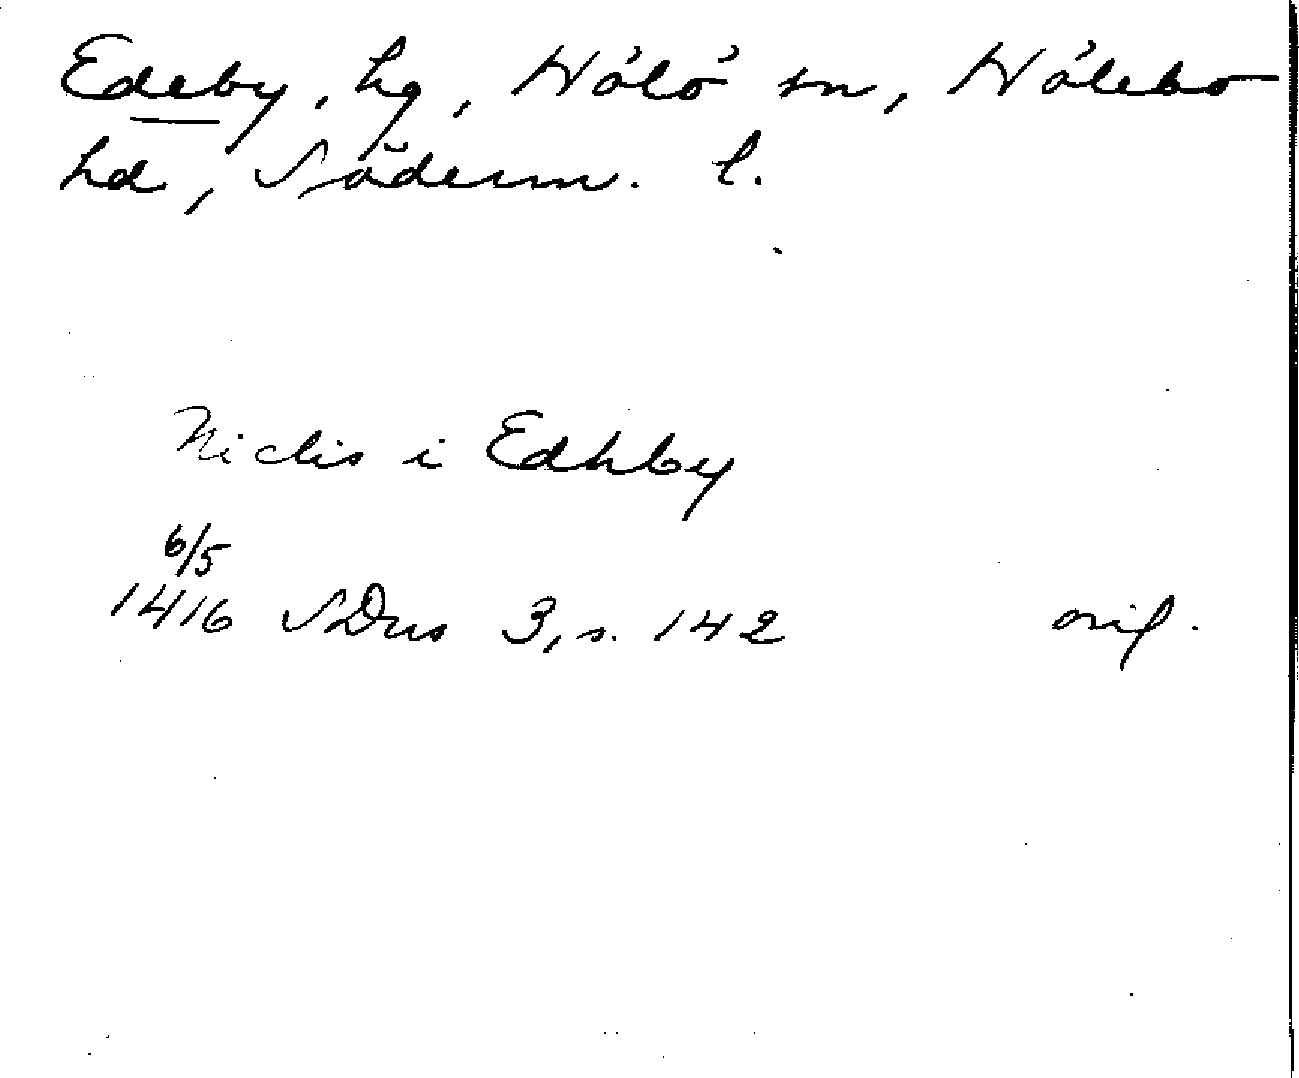 Edeby, hg, Hölö sn, Hölebo
hd, Söderm. l.
Niclis i Edhby
6/5
1416 SDns 3, s. 142 orig.